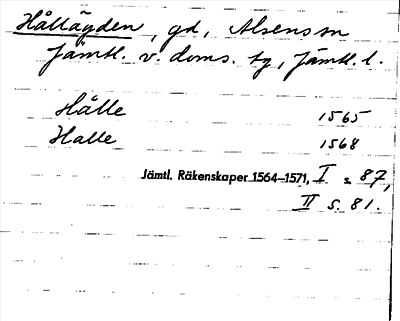 Hålläyden, gd, Alsens sn
Jämtl. v. doms. tg, Jämtl. l.
Hålle 1565
Halle 1568
Jämtl. Räkenskaper 1564–1571, I s. 87,
II s. 81.